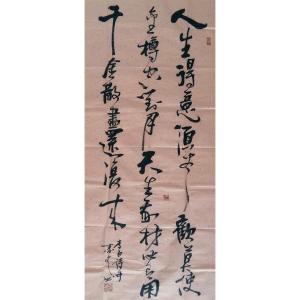 人生得意須尽歡莫使
金樽空對月天生我材必有用
千金散盡還復來
李白詩